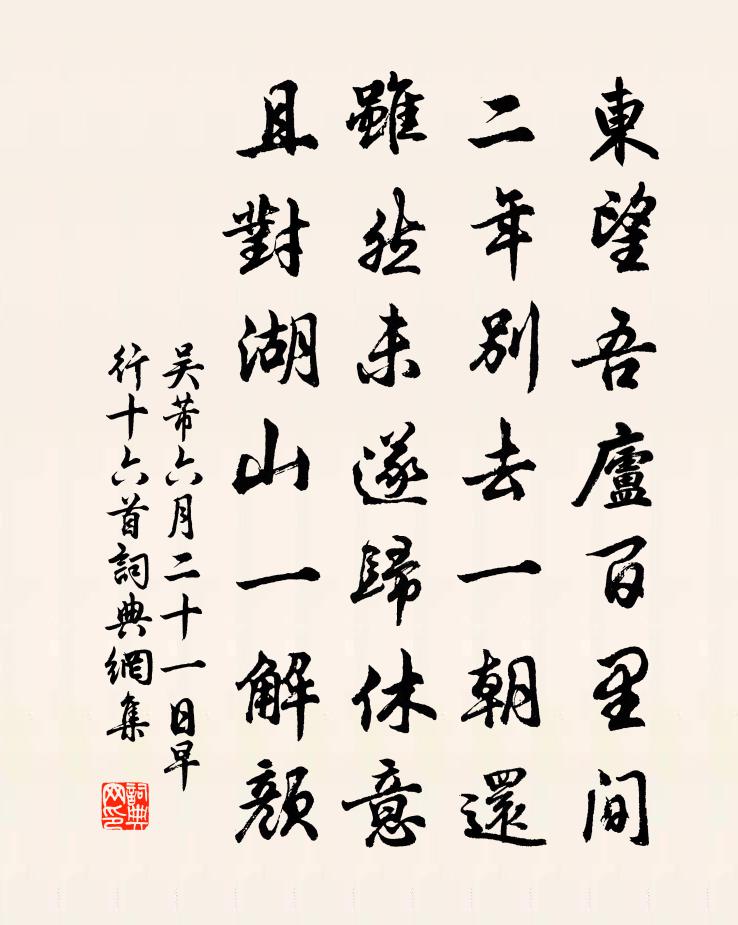 東望吾廬百里間
二年別去一朝還
雖然未遂歸休意
且對湖山一解顏
吴芾六月二十一日早
行十六首詞典網集
詞典網印